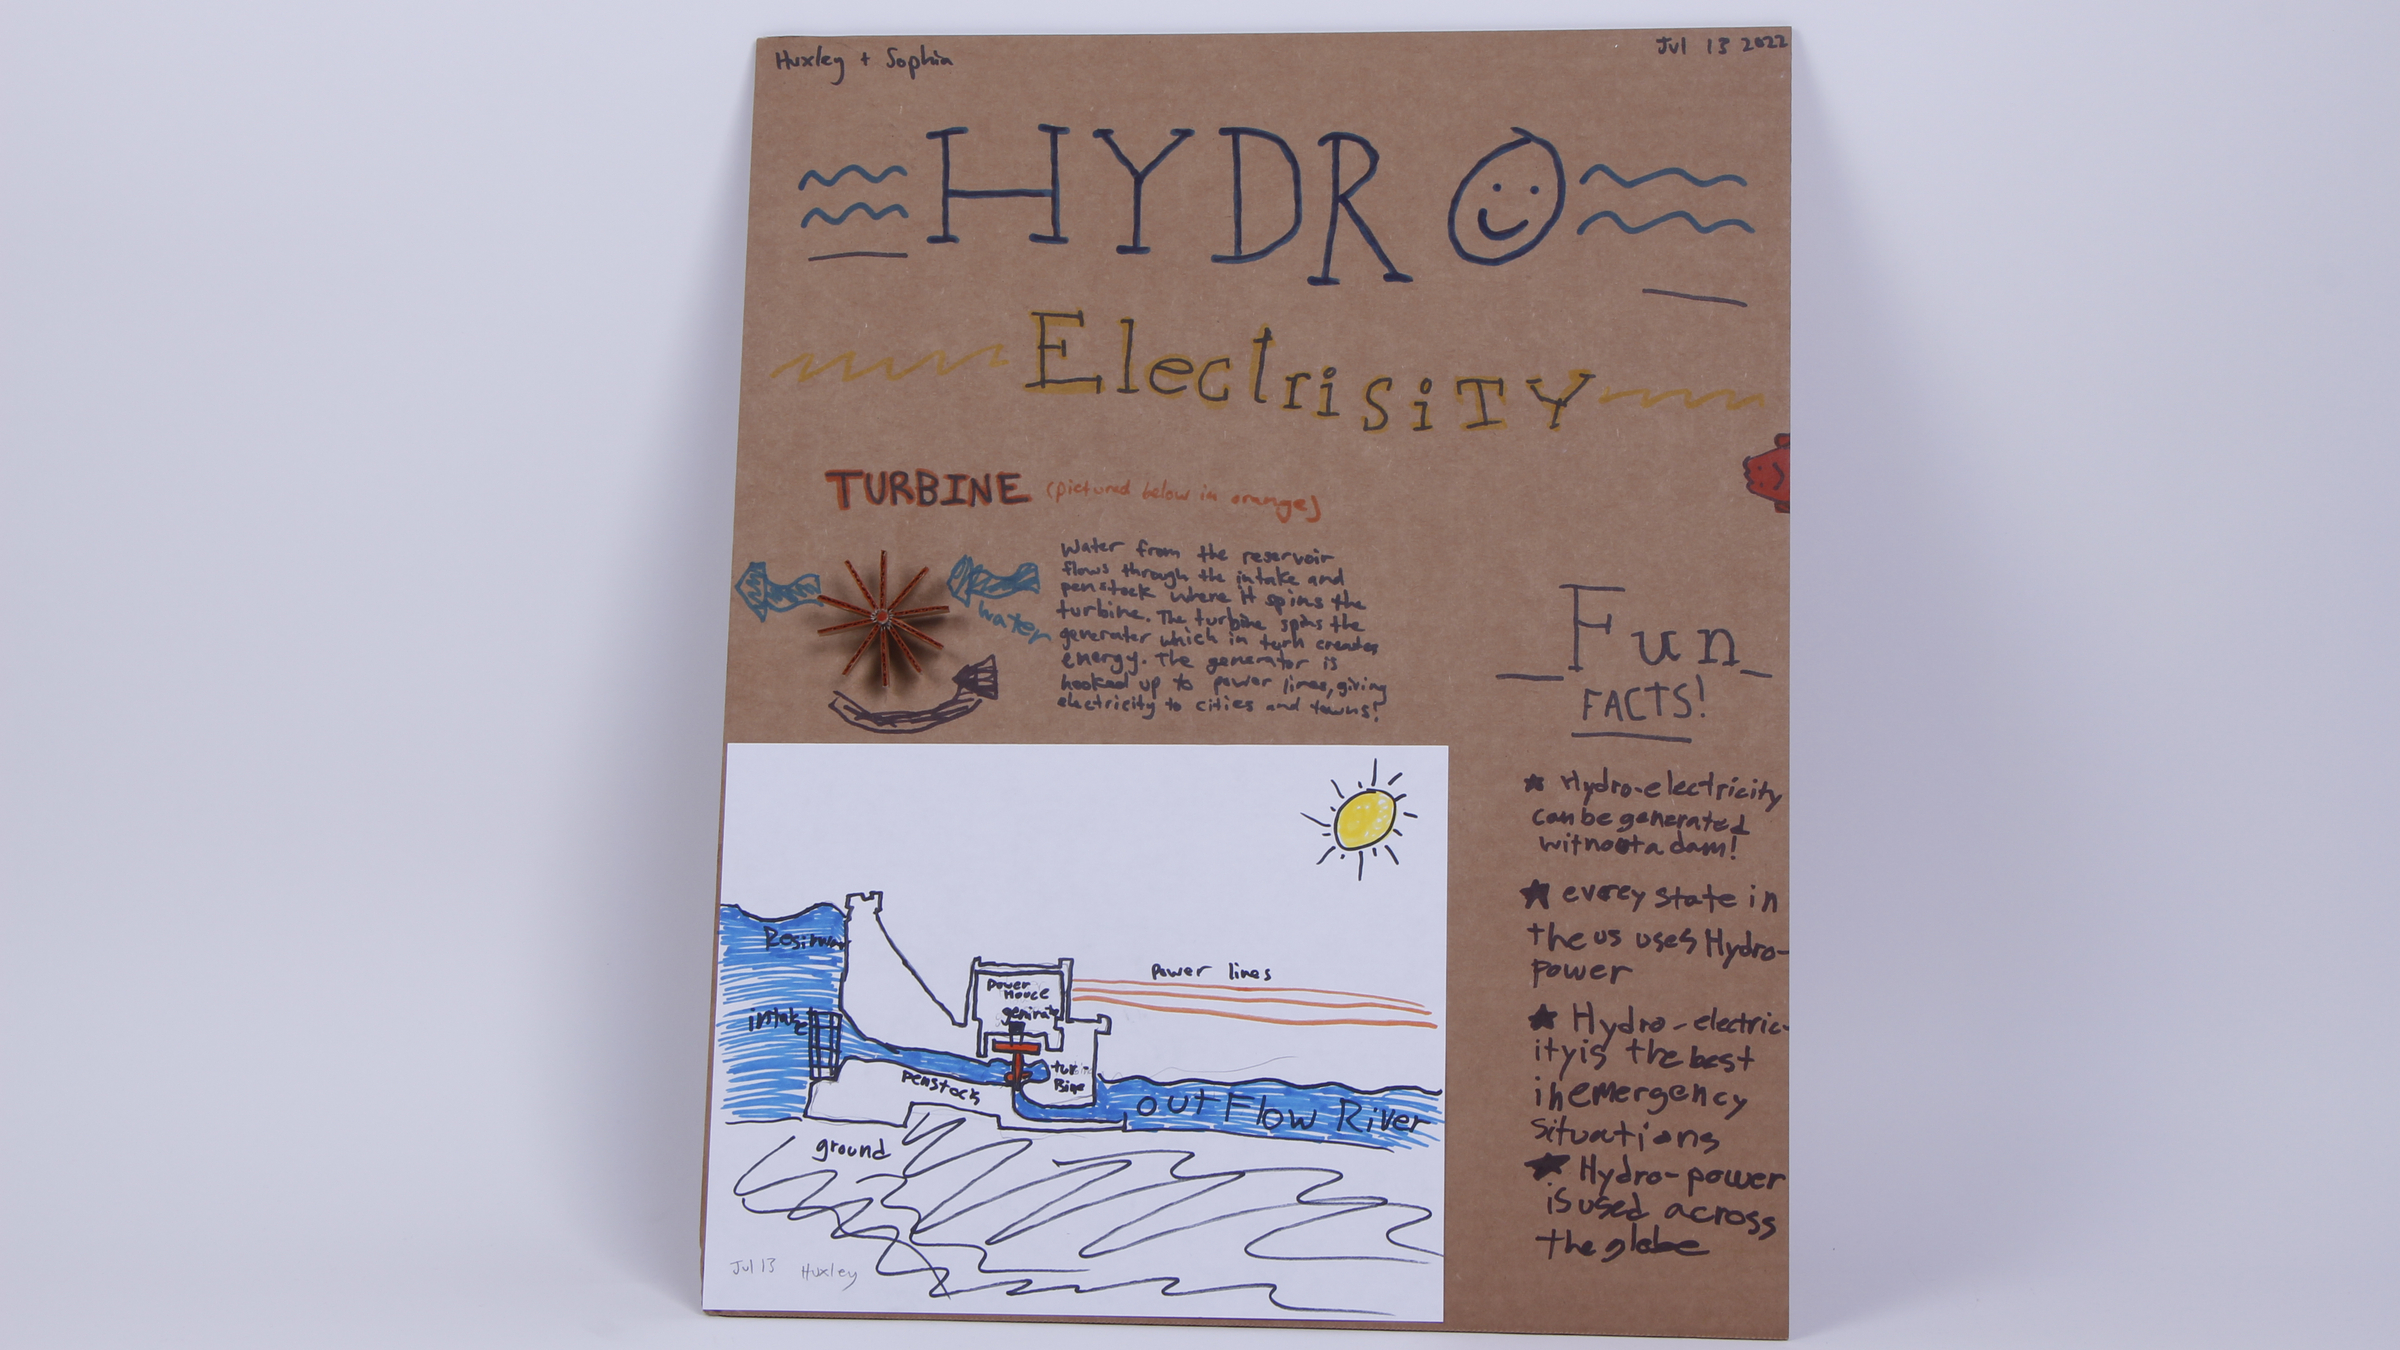 Huxley + Sophia
Jul 13 2022
HYDRO
ElectrisiTY
TURBINE (pictured below in orange)
water
Water from the reservoir
flows through the intake and
penstock where it spins the
turbine. The turbine spins the
generater which in turn creates
energy. The generator is
hooked up to power lines, giving
electricity to cities and towns!
Fun
FACTS!
★ Hydro-electricity
can be generated
without a dam!
★ every state in
the us uses Hydro-
power
★ Hydro-electric-
ity is the best
in emergency
situations
★ Hydro-power
is used across
the globe
intake
power
Power lines
penstock
tur
Bine
outFlow River
ground
Jul 13 Huxley